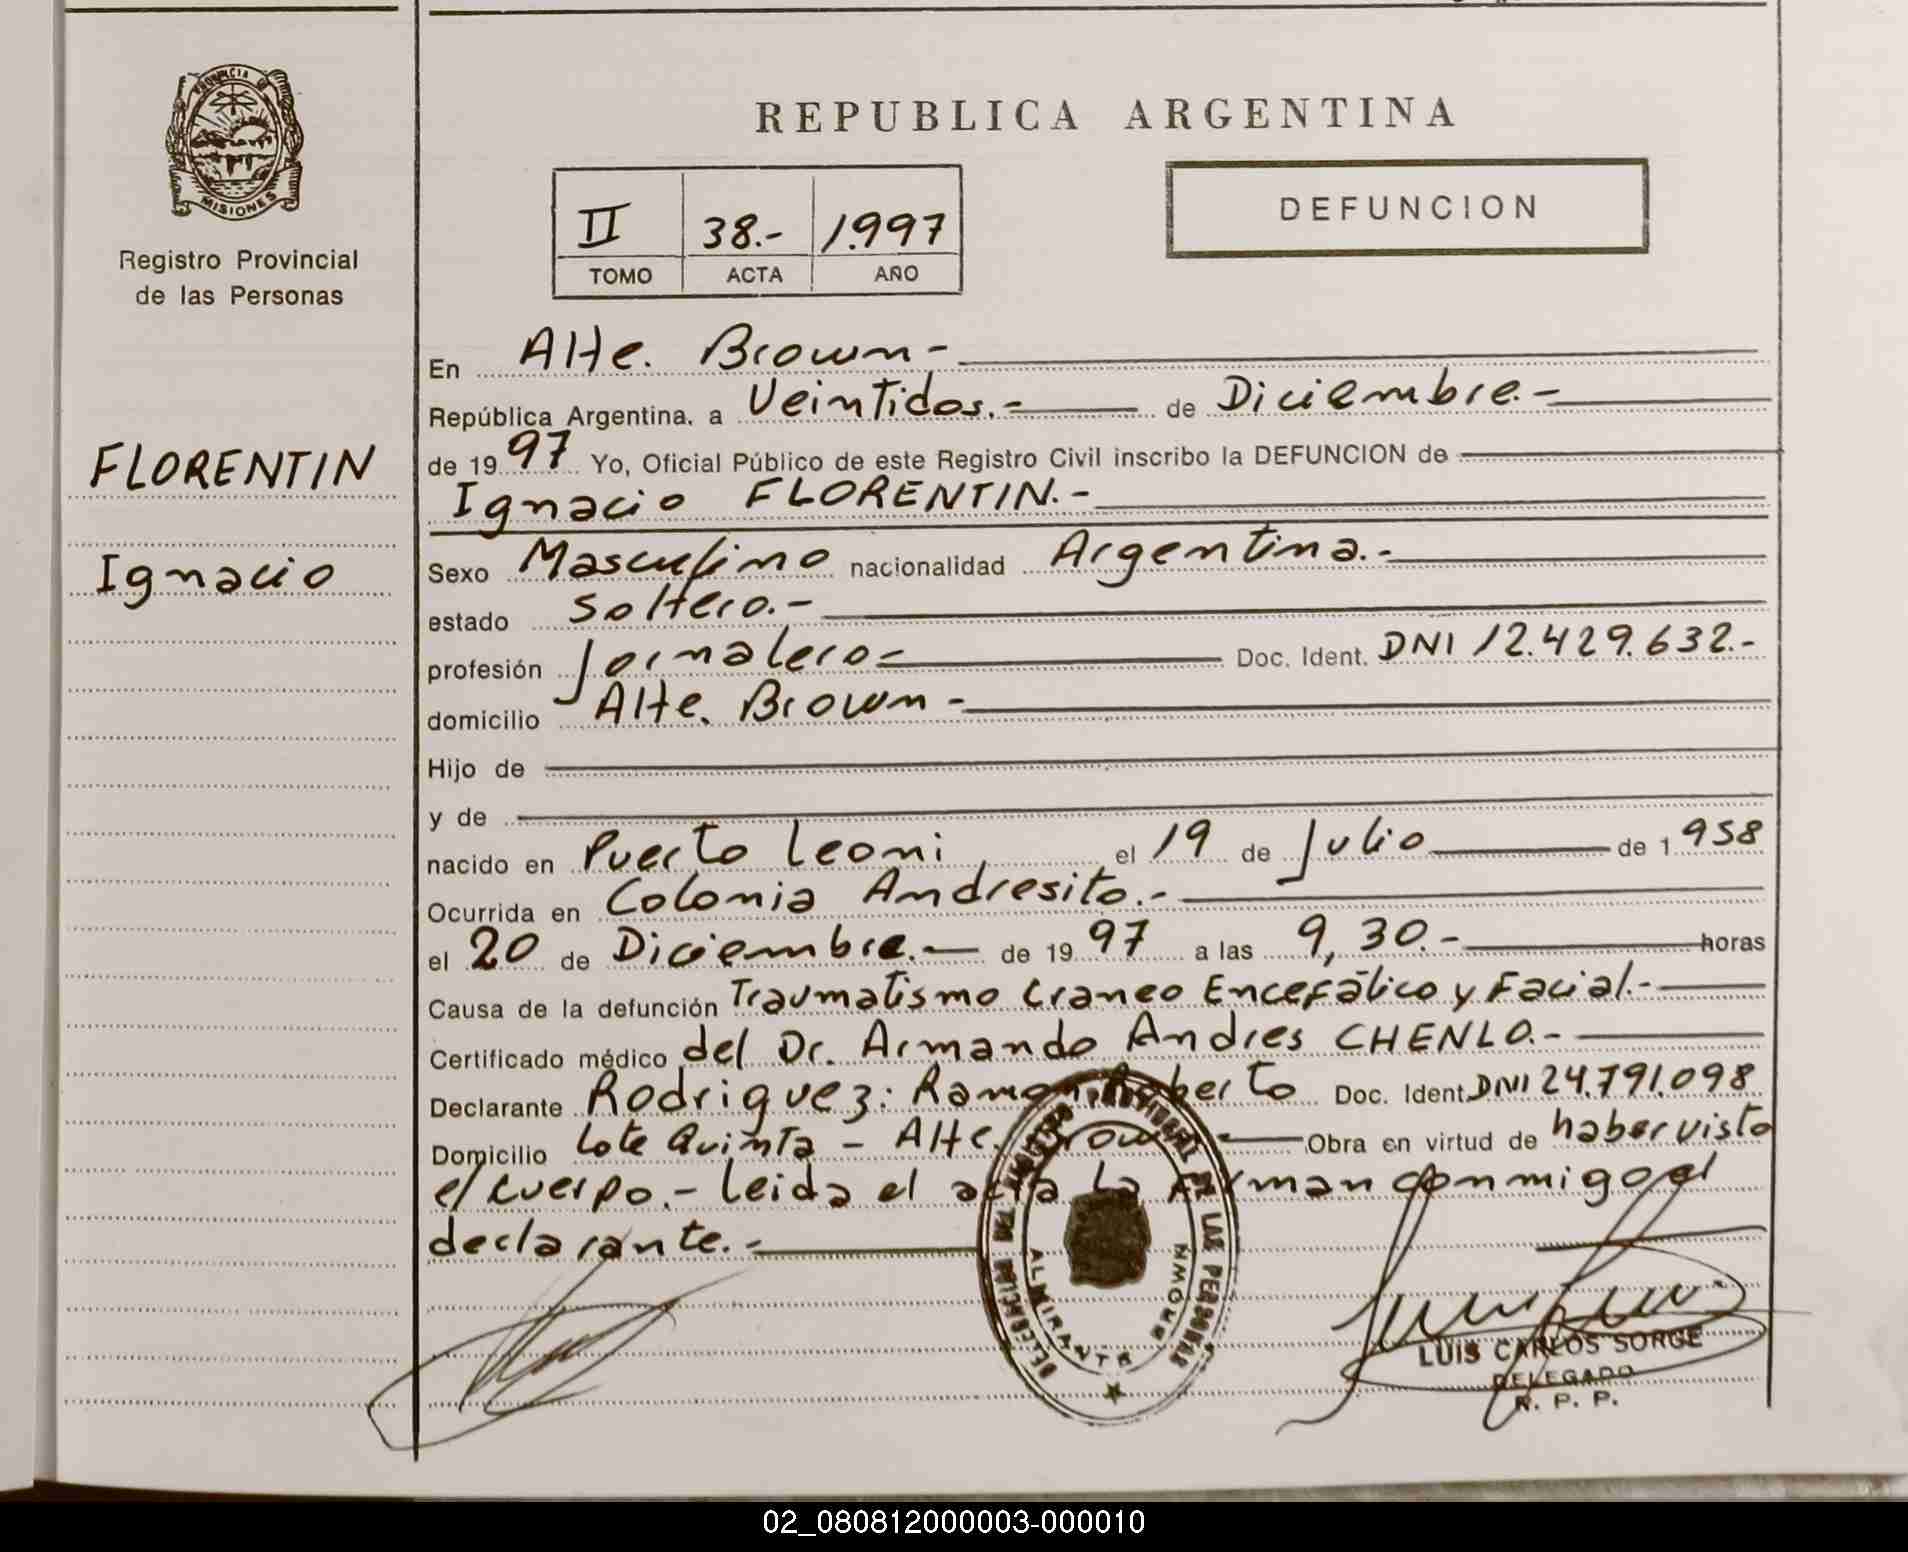 PROVINCIA DE
MISIONES
Registro Provincial
de las Personas
FLORENTIN
Ignacio
REPUBLICA ARGENTINA
II 38.- 1.997
TOMO ACTA AÑO
DEFUNCION
En Alte. Brown-
República Argentina, a Veintidos.- de Diciembre.-
de 19 97 Yo, Oficial Público de este Registro Civil inscribo la DEFUNCION de
Ignacio FLORENTIN.-
Sexo Masculino nacionalidad Argentina.-
estado Soltero.-
profesión Jornalero- Doc. Ident. DNI 12.429.632.-
domicilio Alte. Brown-
Hijo de
y de
nacido en Puerto Leoni, el 19 de Julio de 1 958
Ocurrida en Colonia Andresito.-
el 20 de Diciembre.- de 19 97 a las 9,30.- horas
Causa de la defunción Traumatismo Craneo Encefático y Facial.-
Certificado médico del Dr. Armando Andres CHENLO.-
Declarante Rodriguez: Ramon Roberto Doc. Ident. DNI 24.791.098
Domicilio Lote Quinta - Alte. Brown- Obra en virtud de haber visto
el cuerpo.- Leida el acta la firman conmigo el
declarante.-
DELEGACION DEL REGISTRO PROVINCIAL DE LAS PERSONAS
ALMIRANTE BROWN
LUIS CARLOS SORGE
DELEGADO
R. P. P.
02_080812000003-000010